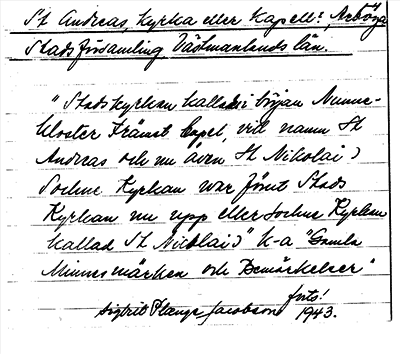 St Andreas, Kyrka eller Kapell: Arboga
Stads församling, Västmanlands län.
"Stadskyrkan kallades i början Nunne-
kloster Främst Capel, vid namn St
Andreas och nu även St Nikolai)
Sochne Kyrkan war först Stads
Kyrkan nu upp eller sochne Kyrkan
kallad St. Nicolai)" K-a "Gamla
Minnesmärken och Bemärkelser"
forts!
Sigbrit Plænge Jacobson 1943.